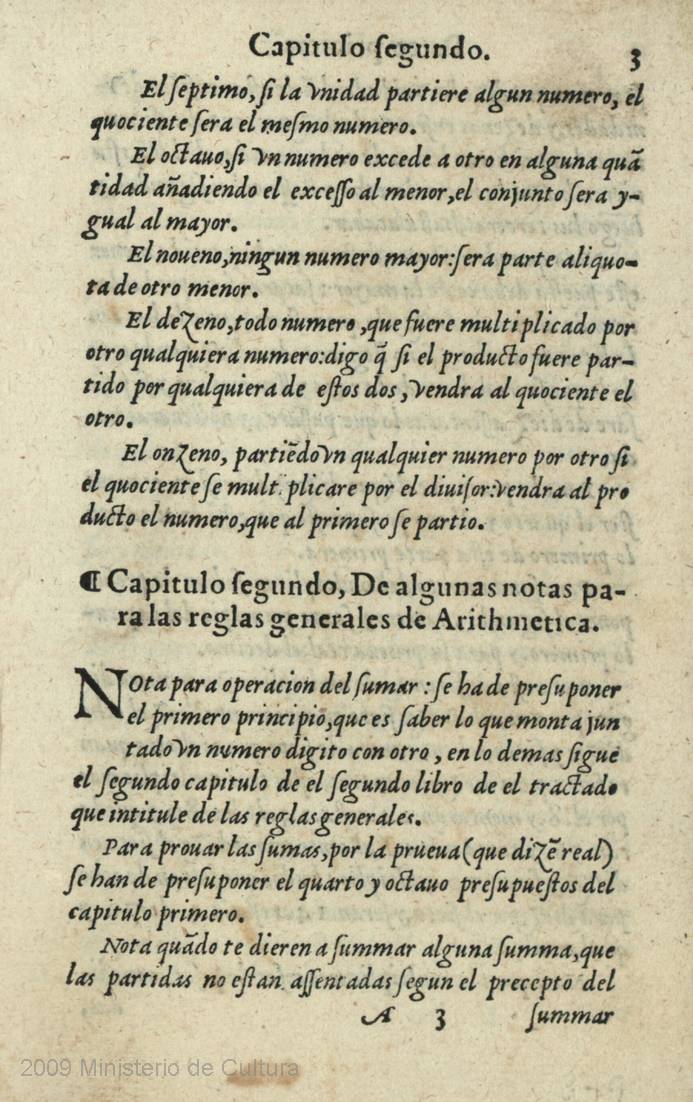 Capitulo ſegundo.
3
El ſeptimo, ſi la vnidad partiere algun numero, el
quociente ſera el meſmo numero.
El octauo, ſi vn numero excede a otro en alguna quã
tidad añadiendo el exceſſo al menor, el conjunto ſera y-
gual al mayor.
El noueno, ningun numero mayor: ſera parte aliquo-
ta de otro menor.
El dezeno, todo numero, que fuere multiplicado por
otro qualquiera numero: digo q̃ ſi el producto fuere par-
tido por qualquiera de eſtos dos, vendra al quociente el
otro.
El onzeno, partiẽdo vn qualquier numero por otro ſi
el quociente ſe mult plicare por el diuiſor: vendra al pro
ducto el numero, que al primero ſe partio.
¶ Capitulo ſegundo, De algunas notas pa-
ra las reglas generales de Arithmetica.
NOta para operacion del ſumar: ſe ha de preſuponer
el primero principio, que es ſaber lo que monta jun
tado vn numero digito con otro, en lo demas ſigue
el ſegundo capitulo de el ſegundo libro de el tractado
que intitule de las reglas generales.
Para prouar las ſumas, por la prueua (que dizẽ real)
ſe han de preſuponer el quarto y octauo preſupueſtos del
capitulo primero.
Nota quãdo te dieren a ſummar alguna ſumma, que
las partidas no eſtan aſſentadas ſegun el precepto del
A 3 ſummar
2009 Ministerio de Cultura